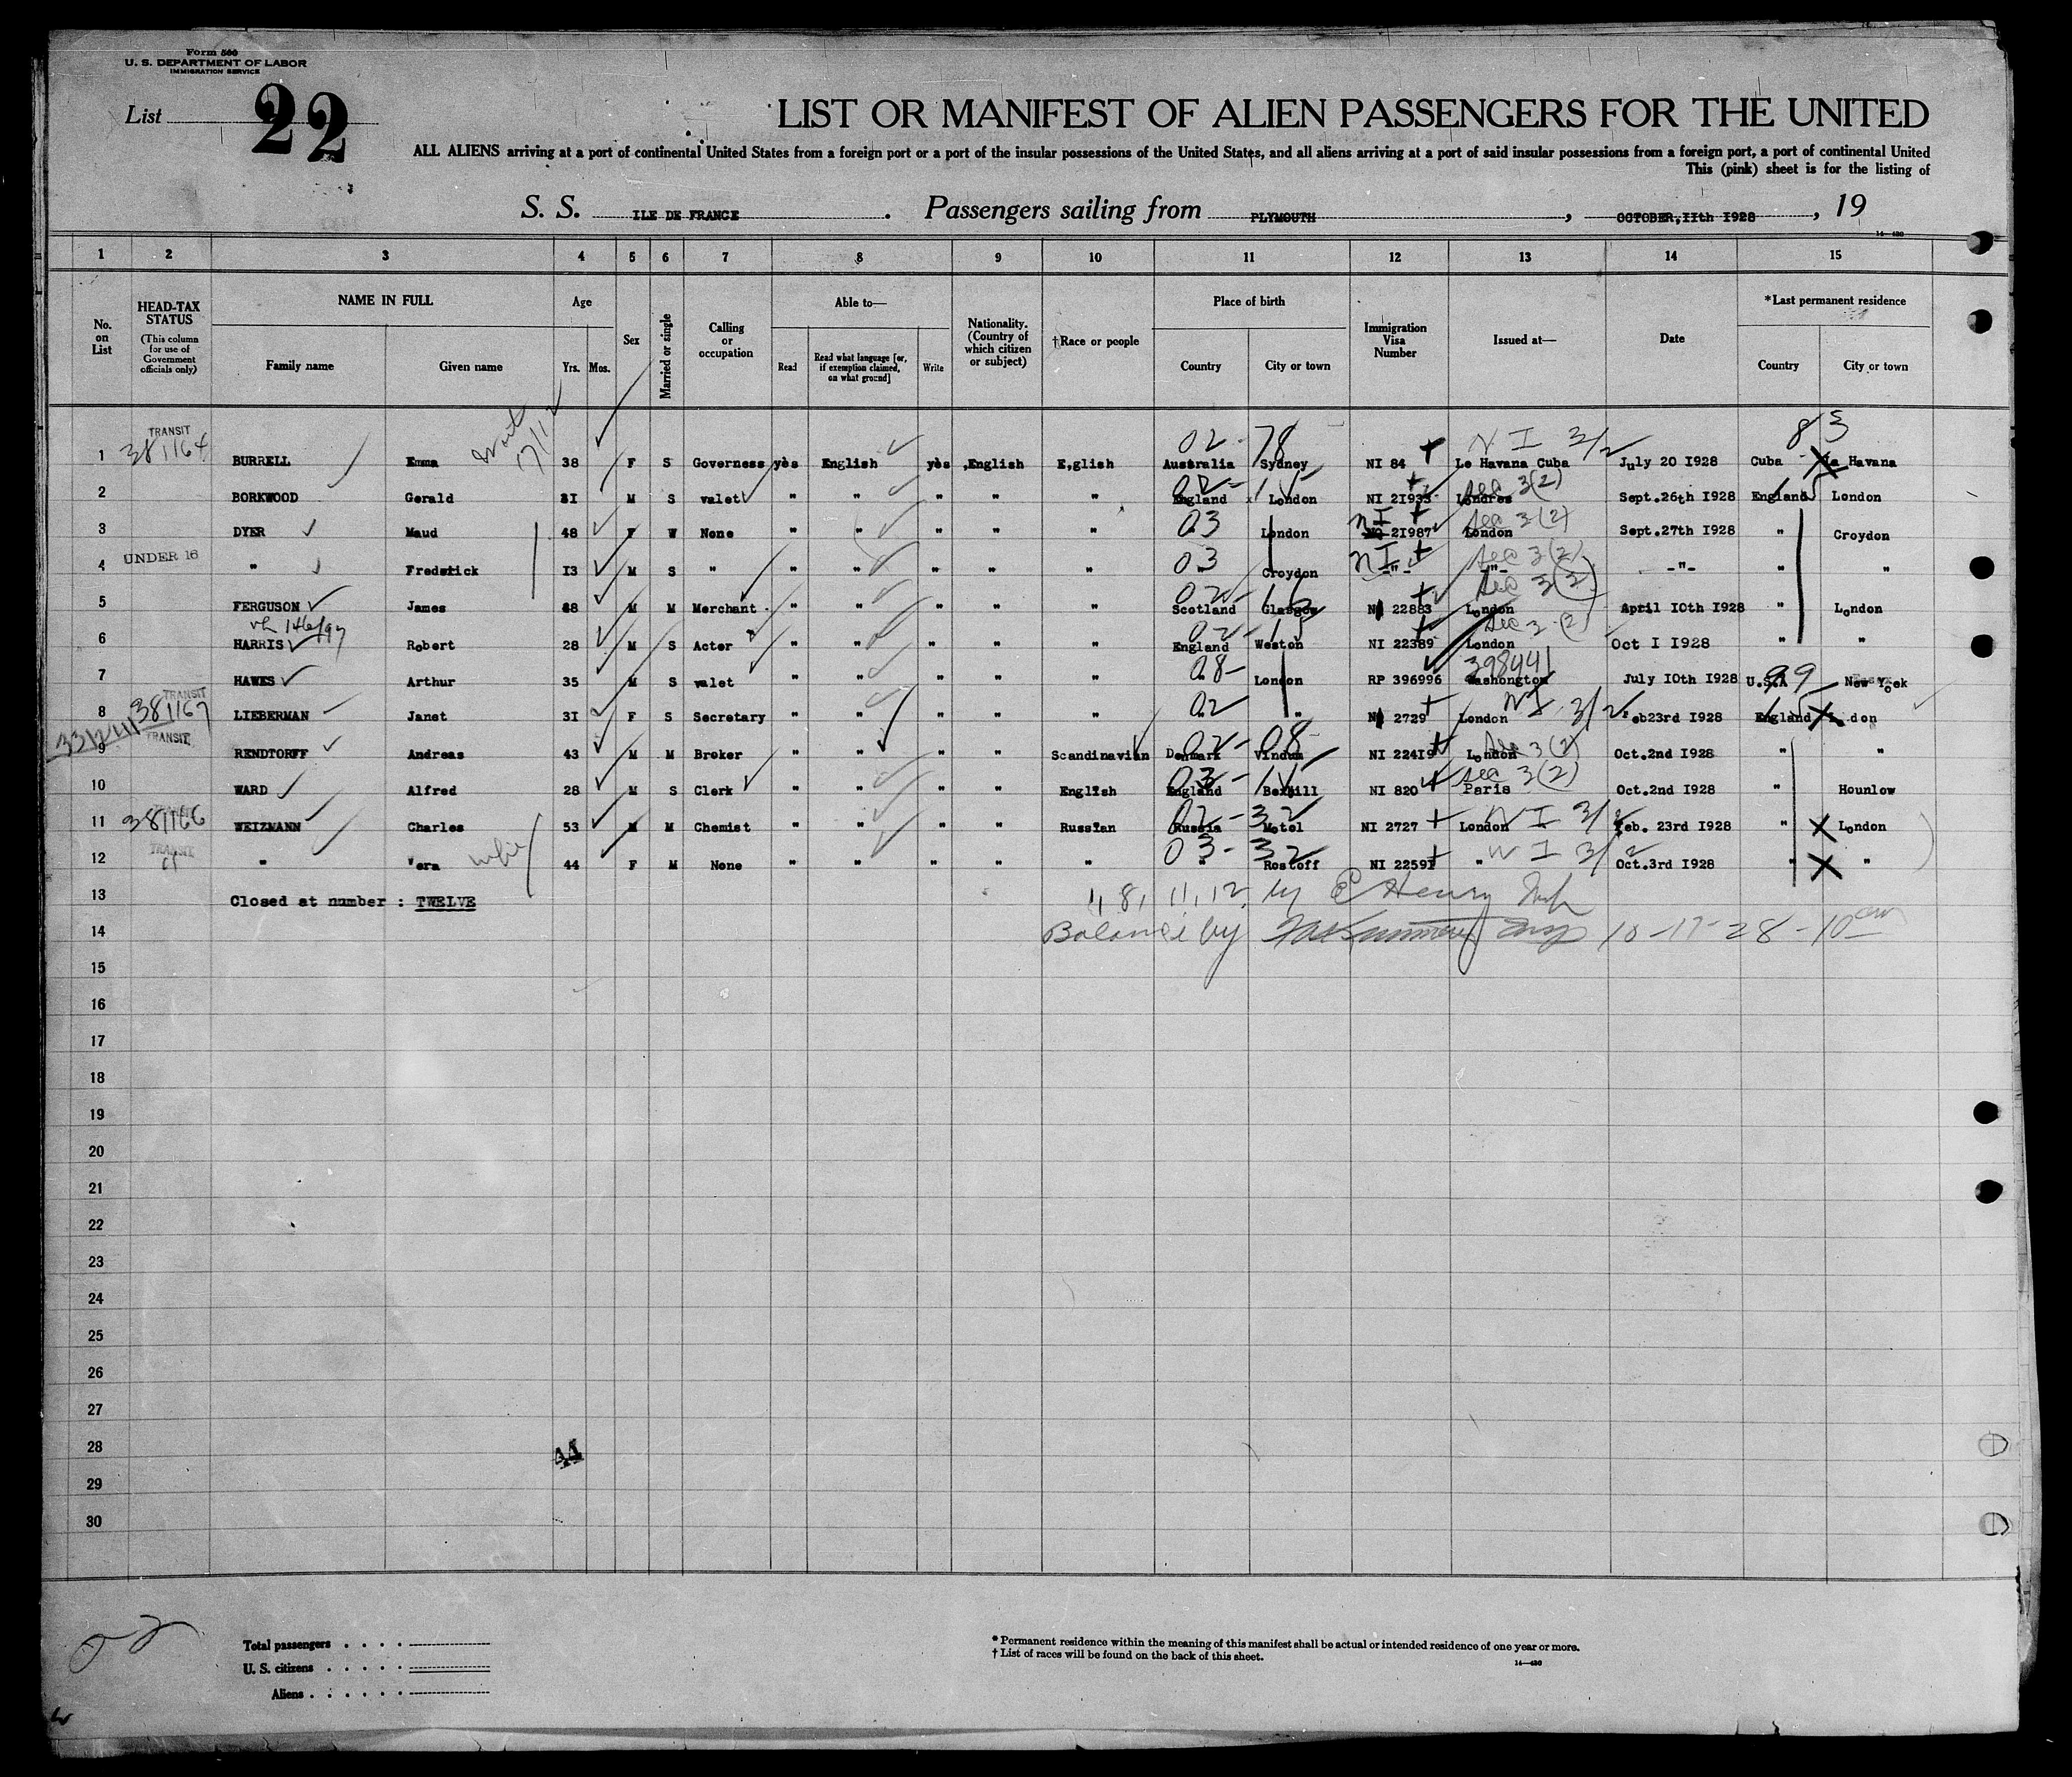 Form 500
U. S. DEPARTMENT OF LABOR
IMMIGRATION SERVICE
List 22
LIST OR MANIFEST OF ALIEN PASSENGERS FOR THE UNITED
ALL ALIENS arriving at a port of continental United States from a foreign port or a port of the insular possessions of the United States, and all aliens arriving at a port of said insular possessions from a foreign port, a port of continental United
This (pink) sheet is for the listing of
S. S. ILE DE FRANCE . Passengers sailing from PLYMOUTH , OCTOBER,IIth 1928 , 19
14—430
1 2 3 4 5 6 7 8 9 10 11 12 13 14 15
No. on List
HEAD-TAX STATUS
(This column for use of Government officials only)
NAME IN FULL
Family name Given name
Age
Yrs. Mos.
Sex
Married or single
Calling or occupation
Able to—
Read
Read what language [or, if exemption claimed, on what ground]
Write
Nationality. (Country of which citizen or subject)
†Race or people
Place of birth
Country City or town
Immigration Visa Number
Issued at—
Date
*Last permanent residence
Country City or town
TRANSIT 02-78 N I 3/2 83
1 381164 BURRELL Emma 38 F S Governess yès English yès ,English E,glish Australia Sydney NI 84 Le Havana Cuba July 20 I928 Cuba La Havana
2 BORKWOOD Gerald 3I M S valet " " " " " England London NI 2I933 Londres Sept.26th I928 England London
Sec 3(2)
3 DYER Maud 48 F W None " " " " " 03 London NI 2I987 London Sept.27th I928 " Croydon
Sec 3(2)
4 UNDER 16 " Frederick I3 M S " " " " " " 03 " Croydon NI -"- -"- -"- " "
Sec 3(2)
5 FERGUSON James 48 M M Merchant " " " " " Scotland Glasgow NI 22883 London April I0th I928 " London
Sec 3(2)
6 HARRIS Robert 28 M S Actor " " " " " England Weston NI 22389 London Oct I I928 " "
Sec 3(2)
7 HAWES Arthur 35 M S valet " " " " " 08- London RP 396996 Washongton July I0th I928 U.S.A New Yoek
398441 99
8 TRANSIT 381167 LIEBERMAN Janet 3I F S Secretary " " " " " 02 " NI 2729 London Feb23rd I928 England London
N I 3/2
9 TRANSIT RENDTORFF Andreas 43 M M Broker " " " " Scandinavian Denmark Vindum NI 224I9 London Oct.2nd I928 " "
02-08 Sec 3(2)
10 WARD Alfred 28 M S Clerk " " " " English England Bexhill NI 820 Paris Oct.2nd I928 " Hounlow
Sec 3(2)
11 381166 WEIZMANN Charles 53 M M Chemist " " " " Russian Russia Motol NI 2727 London Feb. 23rd I928 " London
02-32 N I 3/2
12 TRANSIT " Vera wife 44 F M None " " " " " " Rostoff NI 2259I " Oct.3rd I928 " "
03-32 N I 3/2
13 Closed at number : TWELVE 1, 8, 11, 12, by Henry
14 Balance by 10-17-28-10 am
15
16
17
18
19
20
21
22
23
24
25
26
27
28 44
29
30
02
Total passengers
U. S. citizens
Aliens
* Permanent residence within the meaning of this manifest shall be actual or intended residence of one year or more.
† List of races will be found on the back of this sheet.
14—430